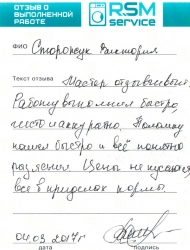 ОТЗЫВ О
ВЫПОЛНЕННОЙ
РАБОТЕ
RSM
service
ФИО Сторожук Виктория
Текст отзыва Мастер отзывчивый.
Работу выполнил быстро,
чисто и аккуратно. Поломку
нашел быстро и всё понятно
разъяснил Цена не кусается
всё в пределах нормы.
04.03.2017г
дата
подпись